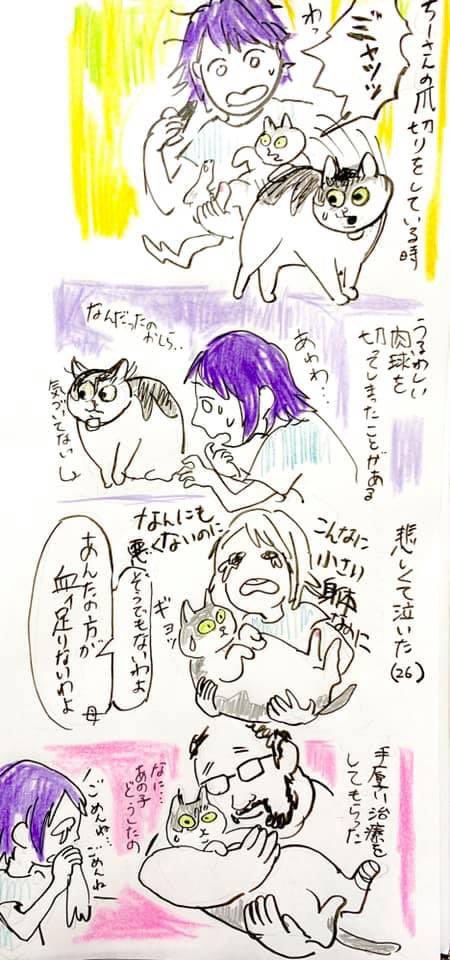 ちーさんの爪
切りをしている時
ミ゛ャッッ
わっ
うるわしい
肉球を
切ってしまったことがある
あわわ…
なんだったの
かしら…
気づいてないし
悲しくて泣いた
(26)
こんなに
小さい
身体
なのに
なんにも
悪くないのに
ギョッ
そうでもないわよ
あんたの方が
血ィ足りないわよ
母
手厚い治療を
してもらった
なに…
あの子
どうしたの
ごめんね…
ごめんね